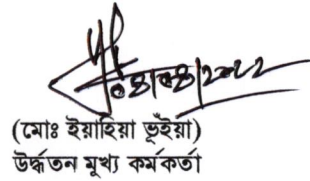 ০৪|০৪|২০২২
(মোঃ ইয়াহিয়া ভূঁইয়া)
উর্দ্ধতন মূখ্য কর্মকর্তা